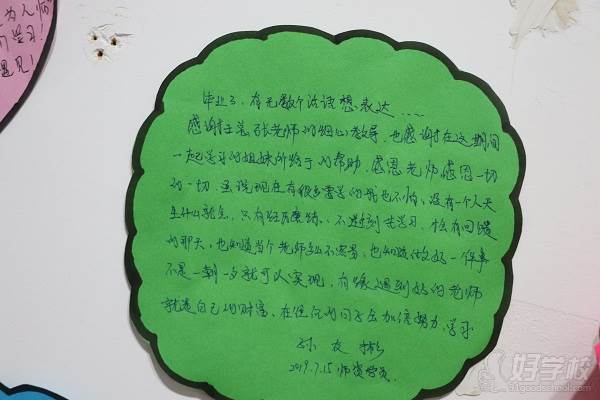 为人师
习学习！
遇见！
毕业了，有无数个话语想表达....
感谢王总、张老师的细心教导，也感谢在这期间
一起学习的姐妹所给予的帮助，感恩老师感恩一切
的一切，虽说现在有很多要学的我也不怕，没有一个人天
生什么都会，只有经历磨练，不断去学习，终有回馈
的那天，也知道当个老师多么不容易，也知道做好一件事
不是一朝一夕就可以实现，有缘遇到好的老师
就是自己的财富，在往后的日子会加倍努力学习
2019.7.15 师资学员.
好学校
91goodschool.com